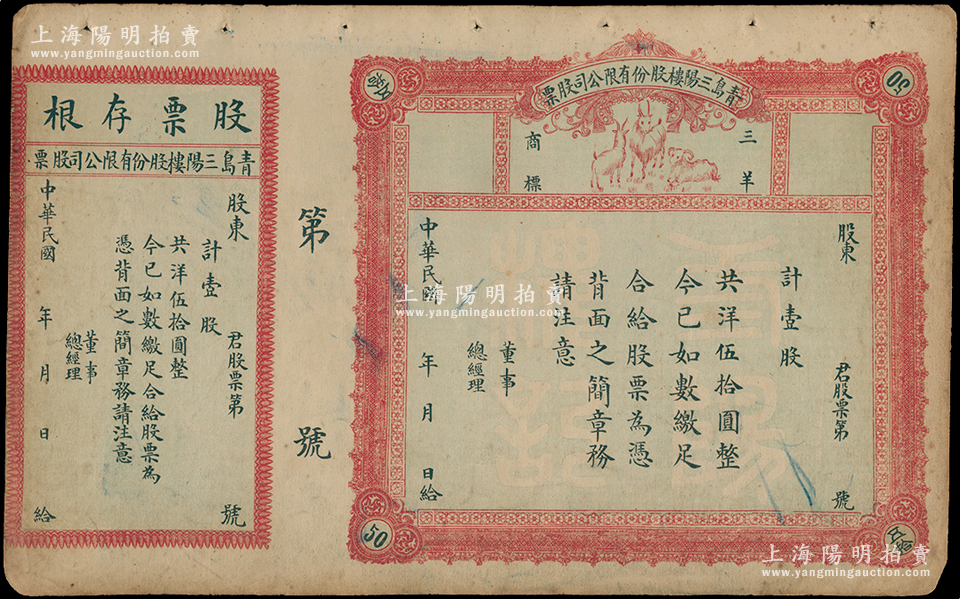 上海陽明拍賣
www.yangmingauction.com
上海陽明拍賣
www.yangmingauction.com
上海陽明拍賣
www.yangmingauction.com
青島三陽樓股份有限公司股票
50
50
三羊
商標
股東
君股票第
號
計壹股
共洋伍拾圓整
今已如數繳足
合給股票為憑
背面之簡章務
請注意
董事
總經理
中華民國
年
月
日給
第
號
股票存根
青島三陽樓股份有限公司股票
股東
君股票第
號
計壹股
共洋伍拾圓整
今已如數繳足合給股票為
憑背面之簡章務請注意
董事
總經理
中華民國
年
月
日
給